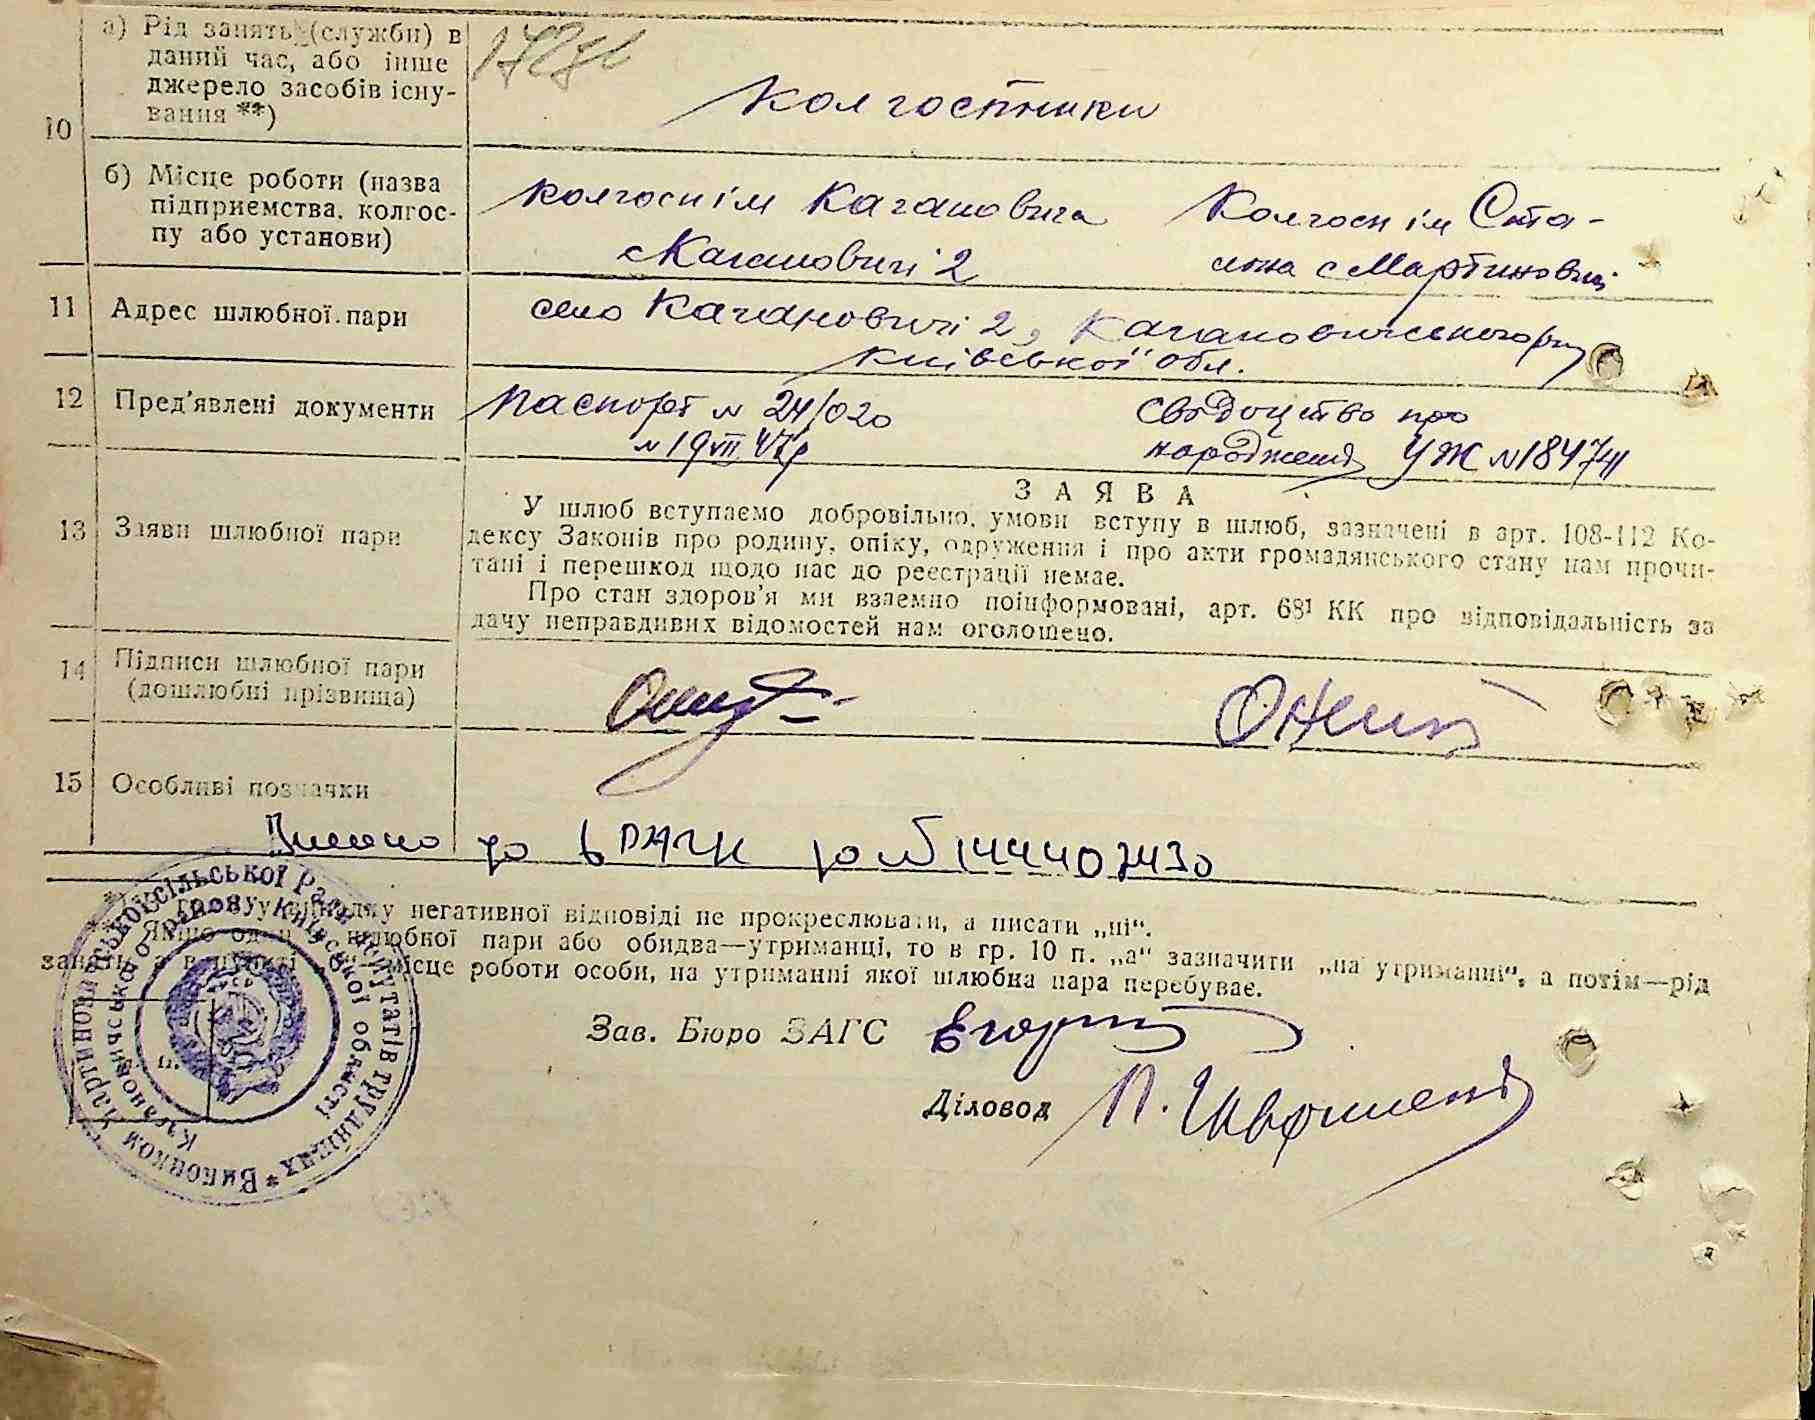 10
а) Рід занять (служби) в
даний час, або інше
джерело засобів існу-
вання **)
колгоспники
б) Місце роботи (назва
підприємства, колгос-
пу або установи)
колгосп ім Кагановича
с Кагановичі 2
Колгосп ім Ста-
ліна с Мартиновичі
11 Адрес шлюбної пари
село Кагановичі 2, Кагановичського р-ну
Київської обл.
12 Пред'явлені документи
Паспорт № 24/020
19 VII 47р
свідоцтво про
народження УЖ №
13 Заяви шлюбної пари
ЗАЯВА
У шлюб вступаємо добровільно, умови вступу в шлюб, зазначені в арт. 108-112 Ко-
дексу Законів про родину, опіку, одруження і про акти громадянського стану нам прочи-
тані і перешкод щодо нас до реєстрації немає.
Про стан здоров'я ми взаємно поінформовані, арт. 68¹ КК про відповідальність за
дачу неправдивих відомостей нам оголошено.
14 Підписи шлюбної пари
(дошлюбні прізвища)
15 Особливі позначки
Внесено до ДРАЦС за №
*) Графу у випадку негативної відповіді не прокреслювати, а писати „ні“.
**) Якщо один з шлюбної пари або обидва—утриманці, то в гр. 10 п. „а“ зазначити „на утриманні“, а потім—рід
занять, а в пункті „б“—місце роботи особи, на утриманні якої шлюбна пара перебуває.
Зав. Бюро ЗАГС
Діловод
Виконком Мартиновичської сільської Ради депутатів трудящих
Кагановичського району Київської області